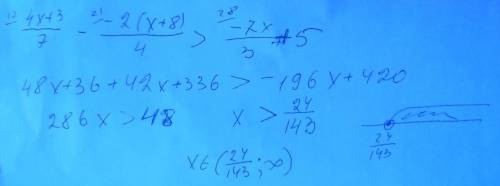 12) (4x+3)/7 - 21) -2(x+8)/4 > 28) -7x/3 + 5
48x+36+42x+336 > -196x+420
286x > 48 x > 24/143
24/143
x∈(24/143; ∞)